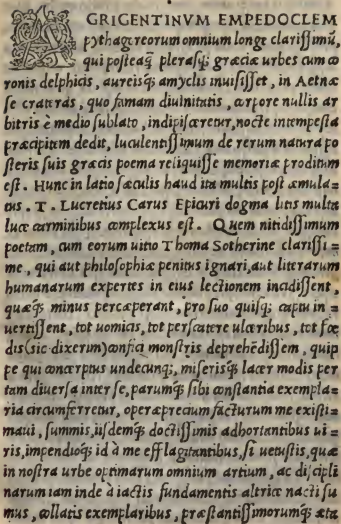 AGRIGENTINVM EMPEDOCLEM
pythagoreorum omnium longe clarissimũ,
qui posteaq̃ plerasq; græciæ urbes cum co
ronis delphicis, aureisq; amyclis inuisisset, in Aetnæ
se crateras, quo famam diuinitatis, corpore nullis ar
bitris è medio sublato, indipisceretur, nocte intempesta
præcipitem dedit, luculentissimum de rerum natura po
steris suis græcis poema reliquisse memoriæ proditum
est. Hunc in latio sæculis haud ita multis post æmula=
tus. T. Lucretius Carus Epicuri dogma litis multa
luce carminibus complexus est. Quem nitidissimum
poetam, cum eorum uitio Thoma Sotherine clarissi=
me, qui aut philosophiæ penitus ignari, aut literarum
humanarum expertes in eius lectionem incidissent,
quæq; minus perceperant, pro suo quisq; captu in=
uertissent, tot uomicis, tot per scatere ulceribus, tot fœ
dis (sic dixerim) confici monstris deprehẽdissem, quip
pe qui concerptus undecunq;, miserisq; lacer modis per
tam diuersa inter se, parumq; sibi constantia exempla=
ria circumferretur, operæprecium facturum me existi=
maui, summis, iisdemq; doctissimis adhortantibus ui=
ris, impendioq; id à me efflagitantibus, si uetustis, quæ
in nostra urbe optimarum omnium artium, ac discipli
narum iam inde à iactis fundamentis altrice nacti su
mus, collatis exemplaribus, præstantissimorumq; æta